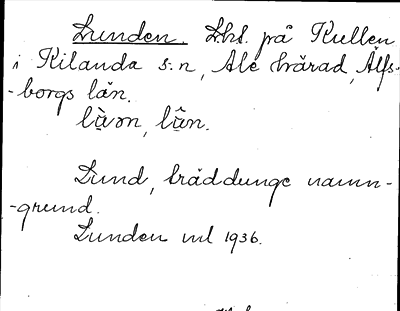 Lunden. Lht. på Kullen
i Kilanda s:n, Ale härad, Älfs-
-borgs län.
Lund, träddunge namn-
-grund.
Lunden ml 1936.